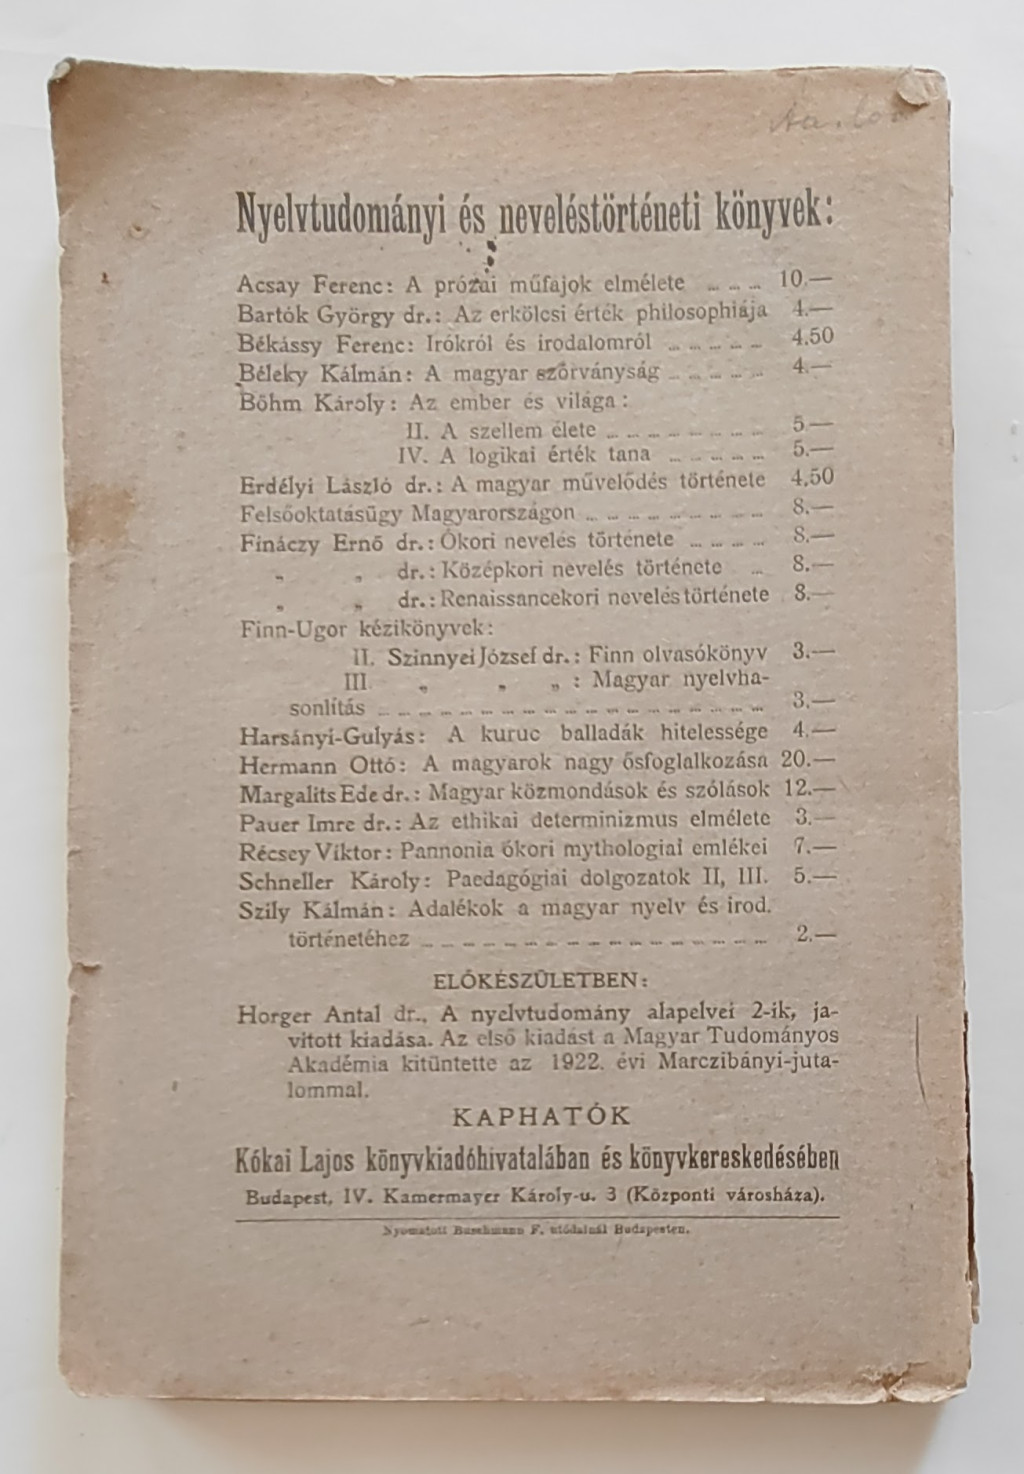 Nyelvtudományi és neveléstörténeti könyvek:
Acsay Ferenc: A prózai műfajok elmélete ... ... ... 10.—
Bartók György dr.: Az erkölcsi érték philosophiája 4.—
Békássy Ferenc: Irókról és irodalomról ... ... ... ... ... 4.50
Béleky Kálmán: A magyar szórványság ... ... ... ... ... 4.—
Bőhm Károly: Az ember és világa:
II. A szellem élete ... ... ... ... ... ... ... ... 5.—
IV. A logikai érték tana ... ... ... ... ... 5.—
Erdélyi László dr.: A magyar művelődés története 4.50
Felsőoktatásügy Magyarországon ... ... ... ... ... ... ... ... ... 8.—
Fináczy Ernő dr.: Ókori nevelés története ... ... ... ... 8.—
„ „ dr.: Középkori nevelés története ... 8.—
„ „ dr.: Renaissancekori nevelés története 8.—
Finn-Ugor kézikönyvek:
II. Szinnyei József dr.: Finn olvasókönyv 3.—
III „ „ „ : Magyar nyelvha-
sonlítás ... ... ... ... ... ... ... ... ... ... ... ... ... ... ... ... ... ... 3.—
Harsányi-Gulyás: A kuruc balladák hitelessége 4.—
Hermann Ottó: A magyarok nagy ősfoglalkozása 20.—
Margalits Ede dr.: Magyar közmondások és szólások 12.—
Pauer Imre dr.: Az ethikai determinizmus elmélete 3.—
Récsey Viktor: Pannonia ókori mythologiai emlékei 7.—
Schneller Károly: Paedagógiai dolgozatok II, III. 5.—
Szily Kálmán: Adalékok a magyar nyelv és irod.
történetéhez ... ... ... ... ... ... ... ... ... ... ... ... ... ... ... ... 2.—
ELŐKÉSZÜLETBEN:
Horger Antal dr., A nyelvtudomány alapelvei 2-ik, ja-
vított kiadása. Az első kiadást a Magyar Tudományos
Akadémia kitüntette az 1922. évi Marczibányi-juta-
lommal.
KAPHATÓK
Kókai Lajos könyvkiadóhivatalában és könyvkereskedésében
Budapest, IV. Kamermayer Károly-u. 3 (Központi városháza).
Nyomatott Buschmann F. utódainál Budapesten.